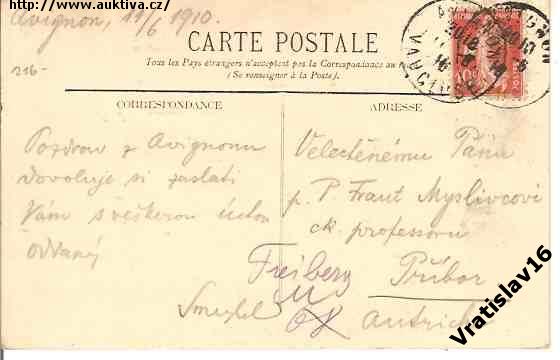 http://www.auktiva.cz/
Avignon, 11/6 1910.
CARTE POSTALE
Tous les Pays étrangers n'acceptent pas la Correspondance au
(Se renseigner à la Poste).
216-
CORRESPONDANCE
Pozdrav z Avignonu
dovoluje si zaslati
Vám s veškerou úctou
oddaný
ADRESSE
Velectěnému Pánu
p. P. Frant Myslivcovi
ck. professoru
Příbor
Freiberg
Autriche
Vratislav16